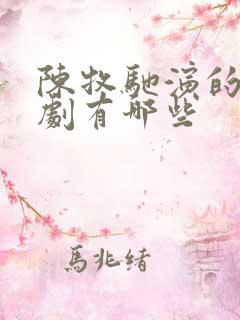 陳牧馳演的
劇有哪些
馬兆緒